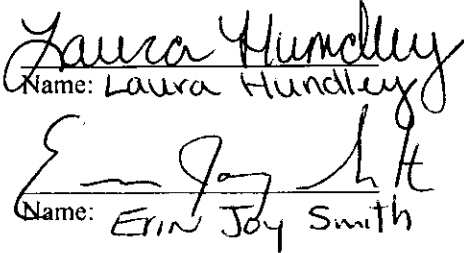 Laura Hundley
Name: Laura Hundley
Erin Joy Smith
Name: Erin Joy Smith